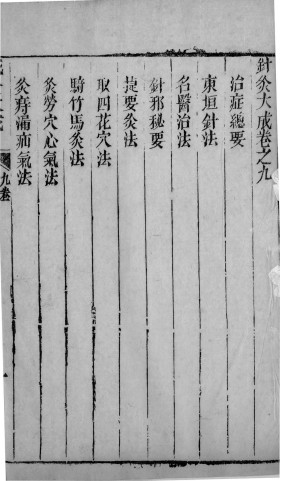 針灸大成卷之九
治症總要
東垣針法
名醫治法
針邪秘要
捷要灸法
取四花穴法
騎竹馬灸法
灸勞穴心氣法
灸痔漏疝氣法
九卷